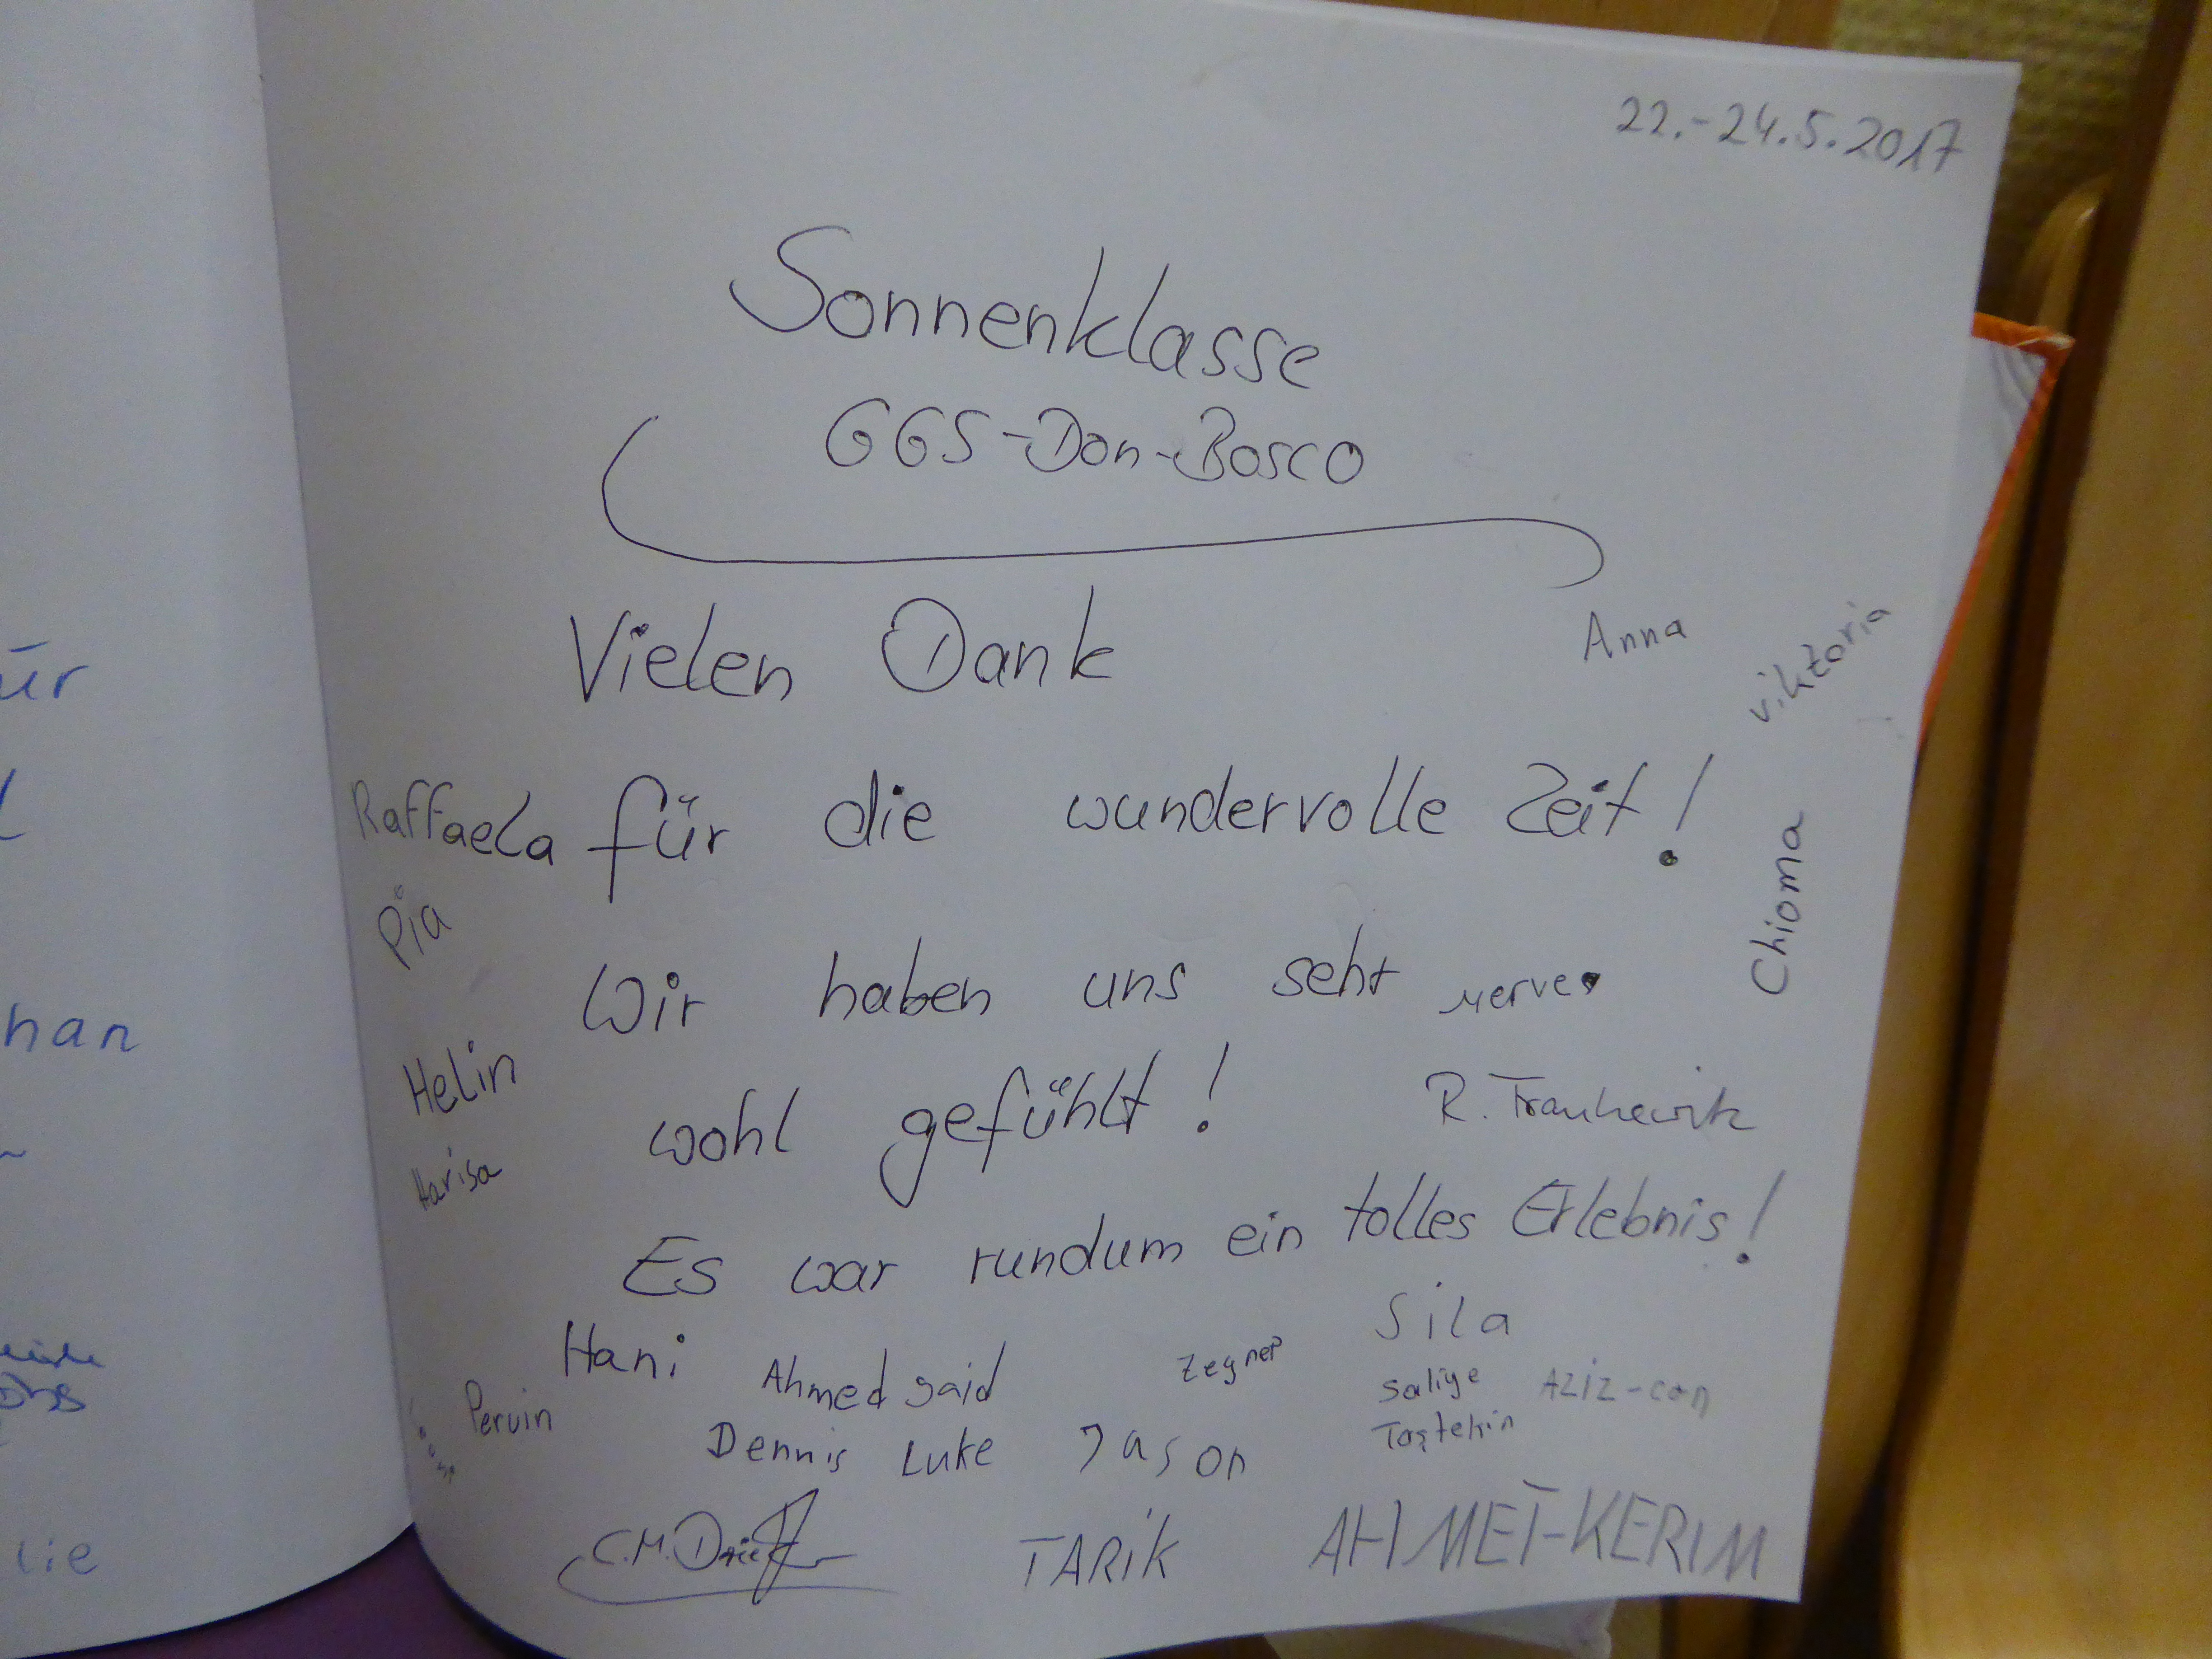 22.-24.5.2017
Sonnenklasse
GGS-Don-Bosco
Vielen Dank
Anna
viktoria
Raffaela
für die wundervolle Zeit!
Pia
Chioma
Wir haben uns sehr
Merve
Helin
wohl gefühlt!
R.
Harisa
Es war rundum ein tolles Erlebnis!
Hani
Ahmed said
Zeynep
Sila
Saliye
Taştekin
Aziz-can
Pervin
Dennis
Luke
Jason
C.M.
TARiK
AHMET-KERIM
ür
han
lie